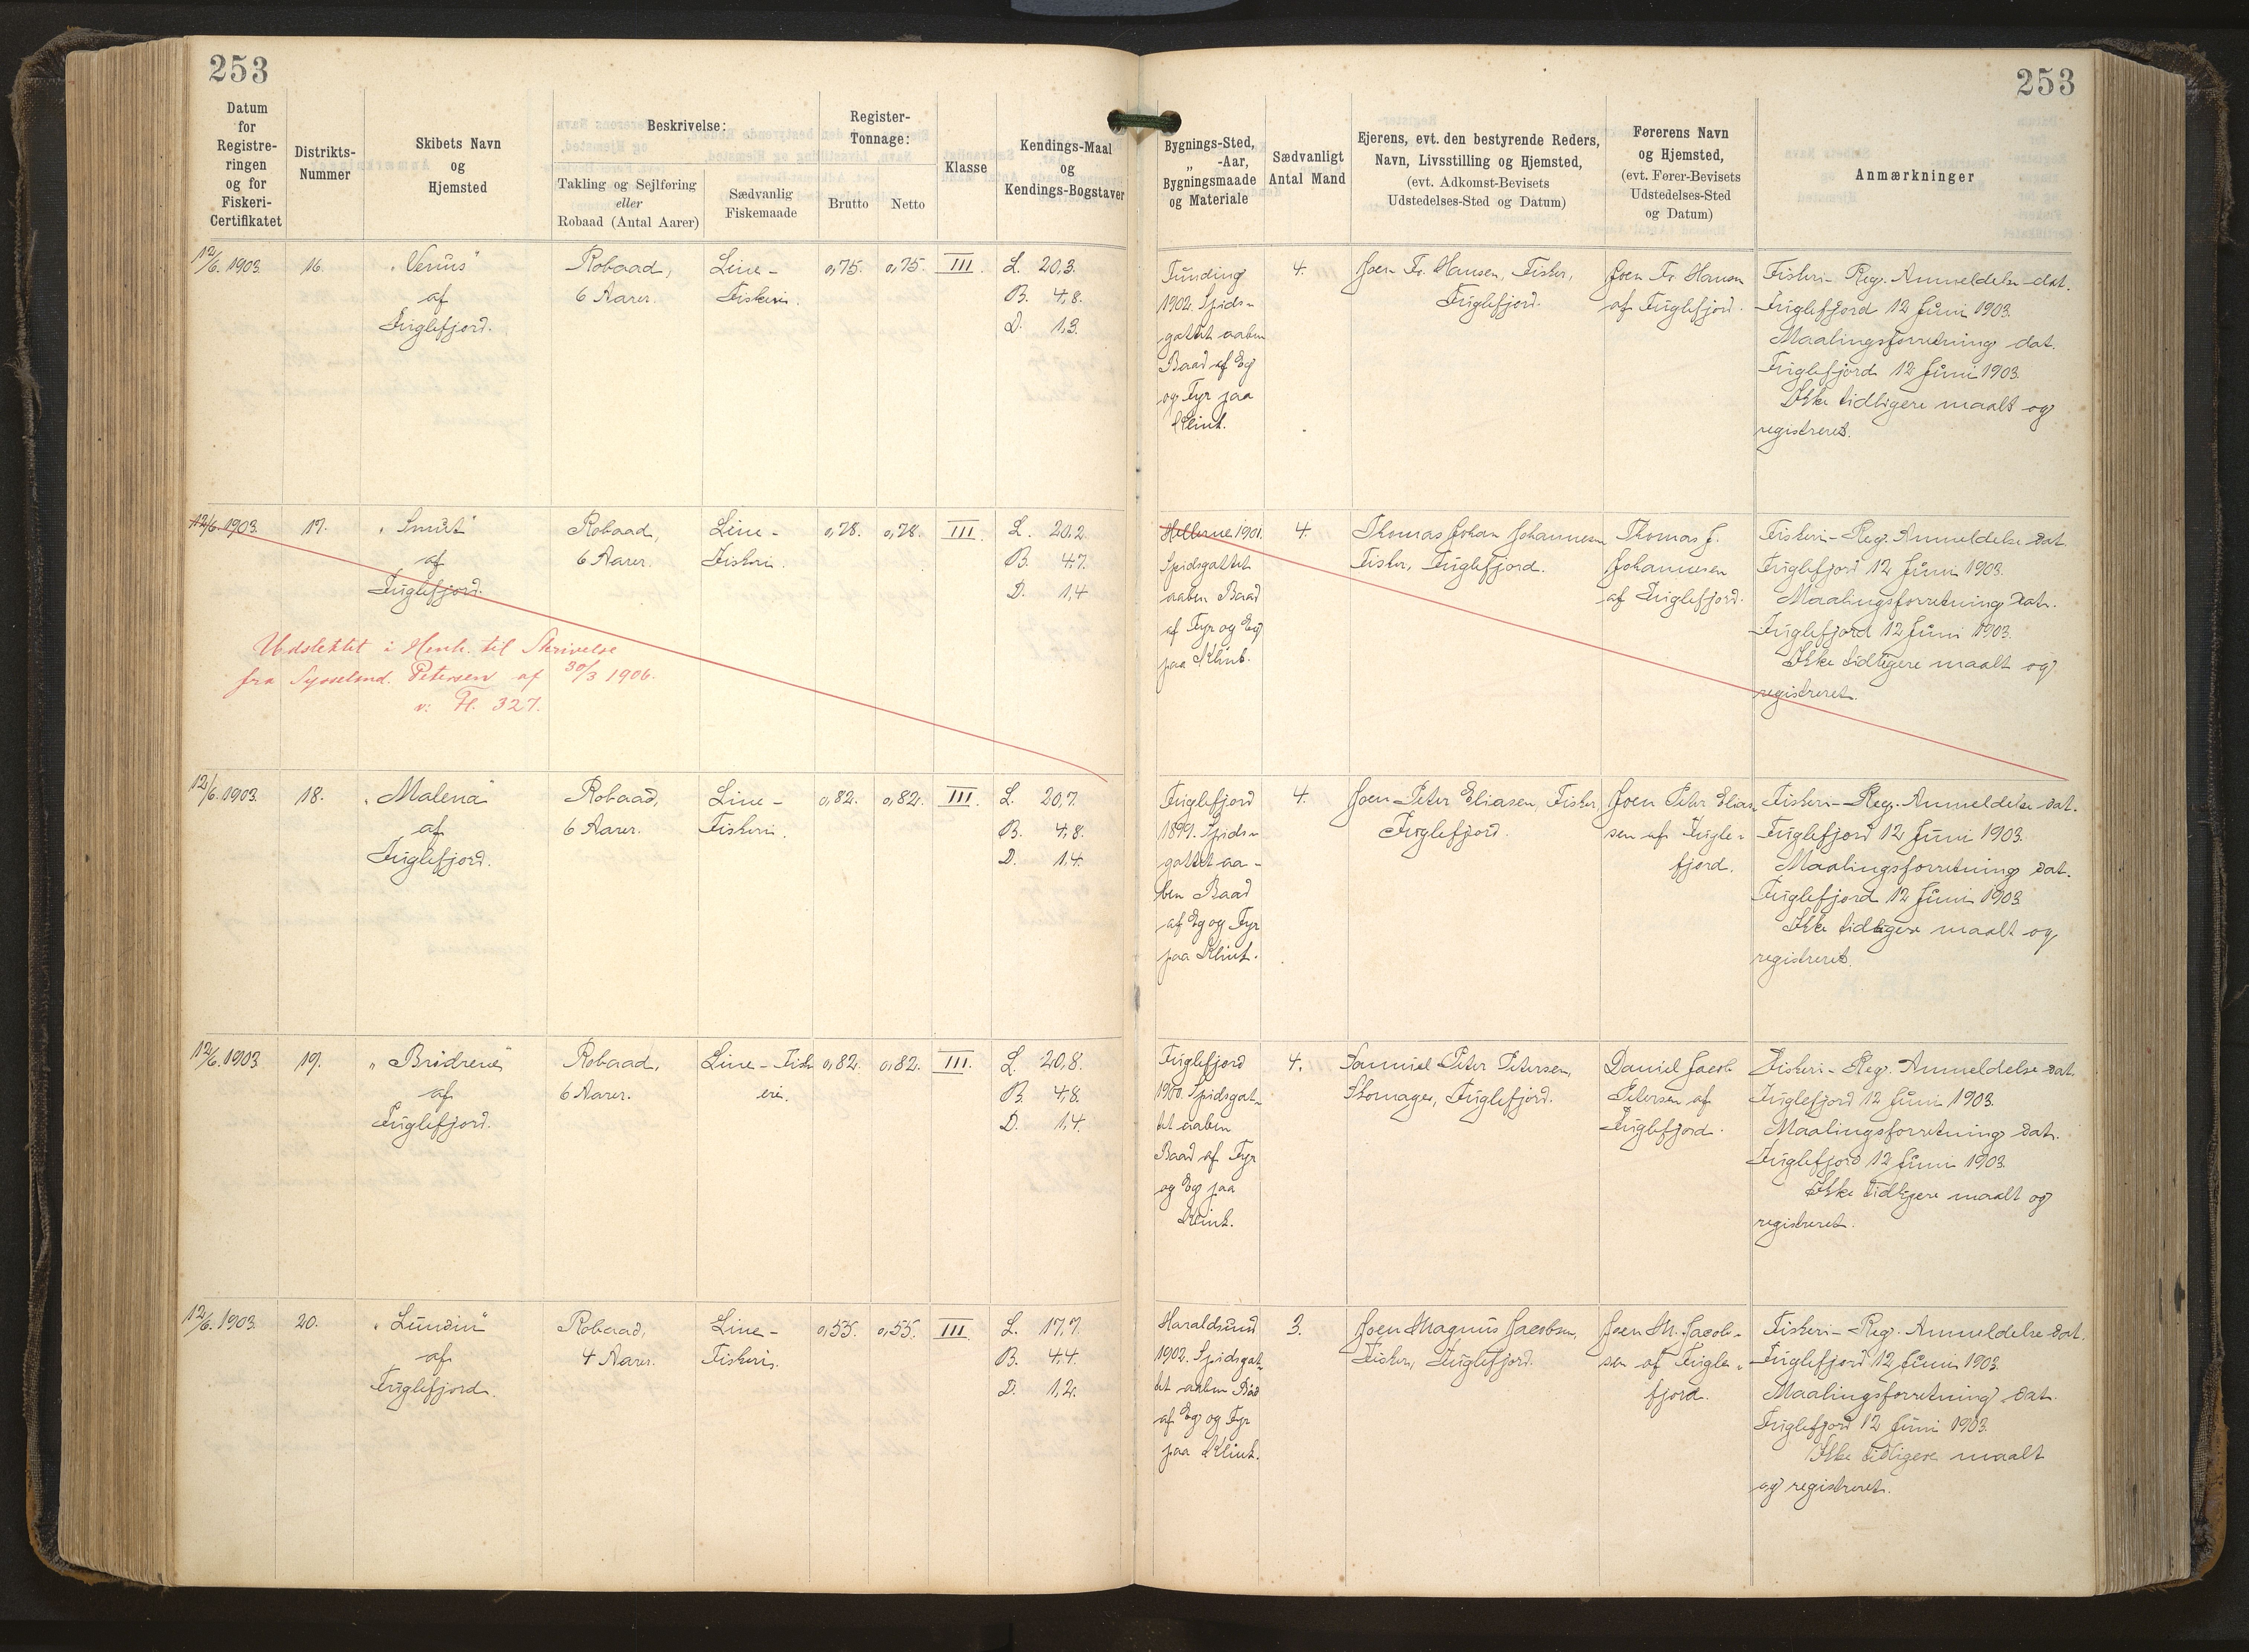 253
253
Datum
for
Registre-
ringen
og for
Fiskeri-
Certifikatet
Distrikts-
Nummer
Skibets Navn
og
Hjemsted
Beskrivelse:
Takling og Sejlføring
eller
Robaad (Antal Aarer)
Sædvanlig
Fiskemaade
Register-
Tonnage:
Brutto
Netto
Klasse
Kendings-Maal
og
Kendings-Bogstaver
Bygnings-Sted,
„ -Aar,
Bygningsmaade
og Materiale
Sædvanligt
Antal Mand
Ejerens, evt. den bestyrende Reders,
Navn, Livsstilling og Hjemsted,
(evt. Adkomst-Bevisets
Udstedelses-Sted og Datum)
Førerens Navn
og Hjemsted,
(evt. Fører-Bevisets
Udstedelses-Sted
og Datum)
Anmærkninger
12/6. 1903.
16.
„Venus"
af
Fuglefjord.
Robaad,
6 Aarer.
Line-
Fiskeri.
0,75.
0,75.
III.
L. 20,3.
B. 4,8.
D. 1,3.
Funding
1902. Spids-
gattet aaben
Baad af Eg
og Fyr paa
Klink.
4.
Joen Fr. Hansen, Fisker,
Fuglefjord.
Joen Fr. Hansen
af Fuglefjord.
Fiskeri-Reg. Anmeldelse dat.
Fuglefjord 12 Juni 1903.
Maalingsforretning dat.
Fuglefjord 12 Juni 1903.
Ikke tidligere maalt og
registreret.
12/6. 1903.
17.
„Smut"
af
Fuglefjord.
Robaad,
6 Aarer.
Line-
Fiskeri.
0,78.
0,78.
III.
L. 20,2
B. 4,7.
D. 1,4
Udslettet i Henh. til Skrivelse
fra Sysselmd. Petersen af 30/3 1906.
v: Fl. 327.
Hellerne 1901.
Spidsgattet
aaben Baad
af Fyr og Eg
paa Klink.
4.
Thomas Johan Johannesen
Fisker, Fuglefjord.
Thomas J.
Johannesen
af Fuglefjord.
Fiskeri-Reg. Anmeldelse dat.
Fuglefjord 12 Juni 1903.
Maalingsforretning dat.
Fuglefjord 12 Juni 1903.
Ikke tidligere maalt og
registreret.
12/6. 1903.
18.
„Malena"
af
Fuglefjord.
Robaad,
6 Aarer.
Line-
Fiskeri.
0,82.
0,82.
III.
L. 20,7.
B. 4,8.
D. 1,4.
Fuglefjord
1899. Spids-
gattet aa-
ben Baad
af Eg og Fyr
paa Klink.
4.
Joen Peter Eliasen, Fisker,
Fuglefjord.
Joen Peter Elia-
sen af Fugle-
fjord.
Fiskeri-Reg. Anmeldelse dat.
Fuglefjord 12 Juni 1903.
Maalingsforretning dat.
Fuglefjord 12 Juni 1903
Ikke tidligere maalt og
registreret.
12/6. 1903
19.
„Brødrene"
af
Fuglefjord.
Robaad,
6 Aarer.
Line-Fisk
eri.
0,82.
0,82.
III.
L. 20,8.
B. 4,8.
D. 1,4.
Fuglefjord
1900. Spidsgat-
tet aaben
Baad af Fyr
og Eg paa
Klink.
4.
Samuel Peter Petersen,
Skomager, Fuglefjord.
Daniel Jacob
Petersen af
Fuglefjord.
Fiskeri-Reg. Anmeldelse dat.
Fuglefjord 12 Juni 1903.
Maalingsforretning dat.
Fuglefjord 12 Juni 1903.
Ikke tidligere maalt og
registreret.
12/6. 1903.
20.
„Lundin"
af
Fuglefjord.
Robaad,
4 Aarer.
Line-
Fiskeri.
0,55.
0,55.
III
L. 17,7.
B. 4,4.
D. 1,2.
Haraldsund
1902. Spidsgat-
tet aaben Båd
af Eg og Fyr
paa Klink.
3.
Joen Magnus Jacobsen,
Fisker, Fuglefjord.
Joen M. Jacob-
sen af Fugle-
fjord.
Fiskeri-Reg. Anmeldelse dat.
Fuglefjord 12 Juni 1903.
Maalingsforretning dat.
Fuglefjord 12 Juni 1903.
Ikke tidligere maalt
og registreret.